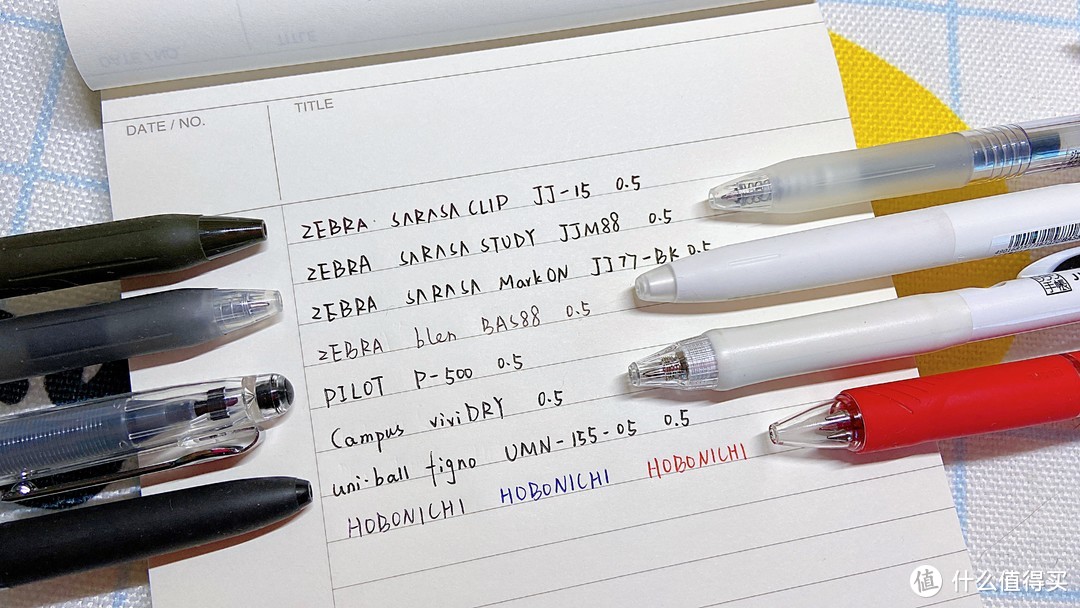 DATE / NO.
TITLE
ZEBRA SARASA CLIP JJ-15 0.5
ZEBRA SARASA STUDY JJM88 0.5
ZEBRA SARASA MarkON JJ77-BK 0.5
ZEBRA blen BAS88 0.5
PILOT P-500 0.5
Campus viviDRY 0.5
uni-ball figno UMN-155-05 0.5
HOBONICHI HOBONICHI HOBONICHI
值 什么值得买